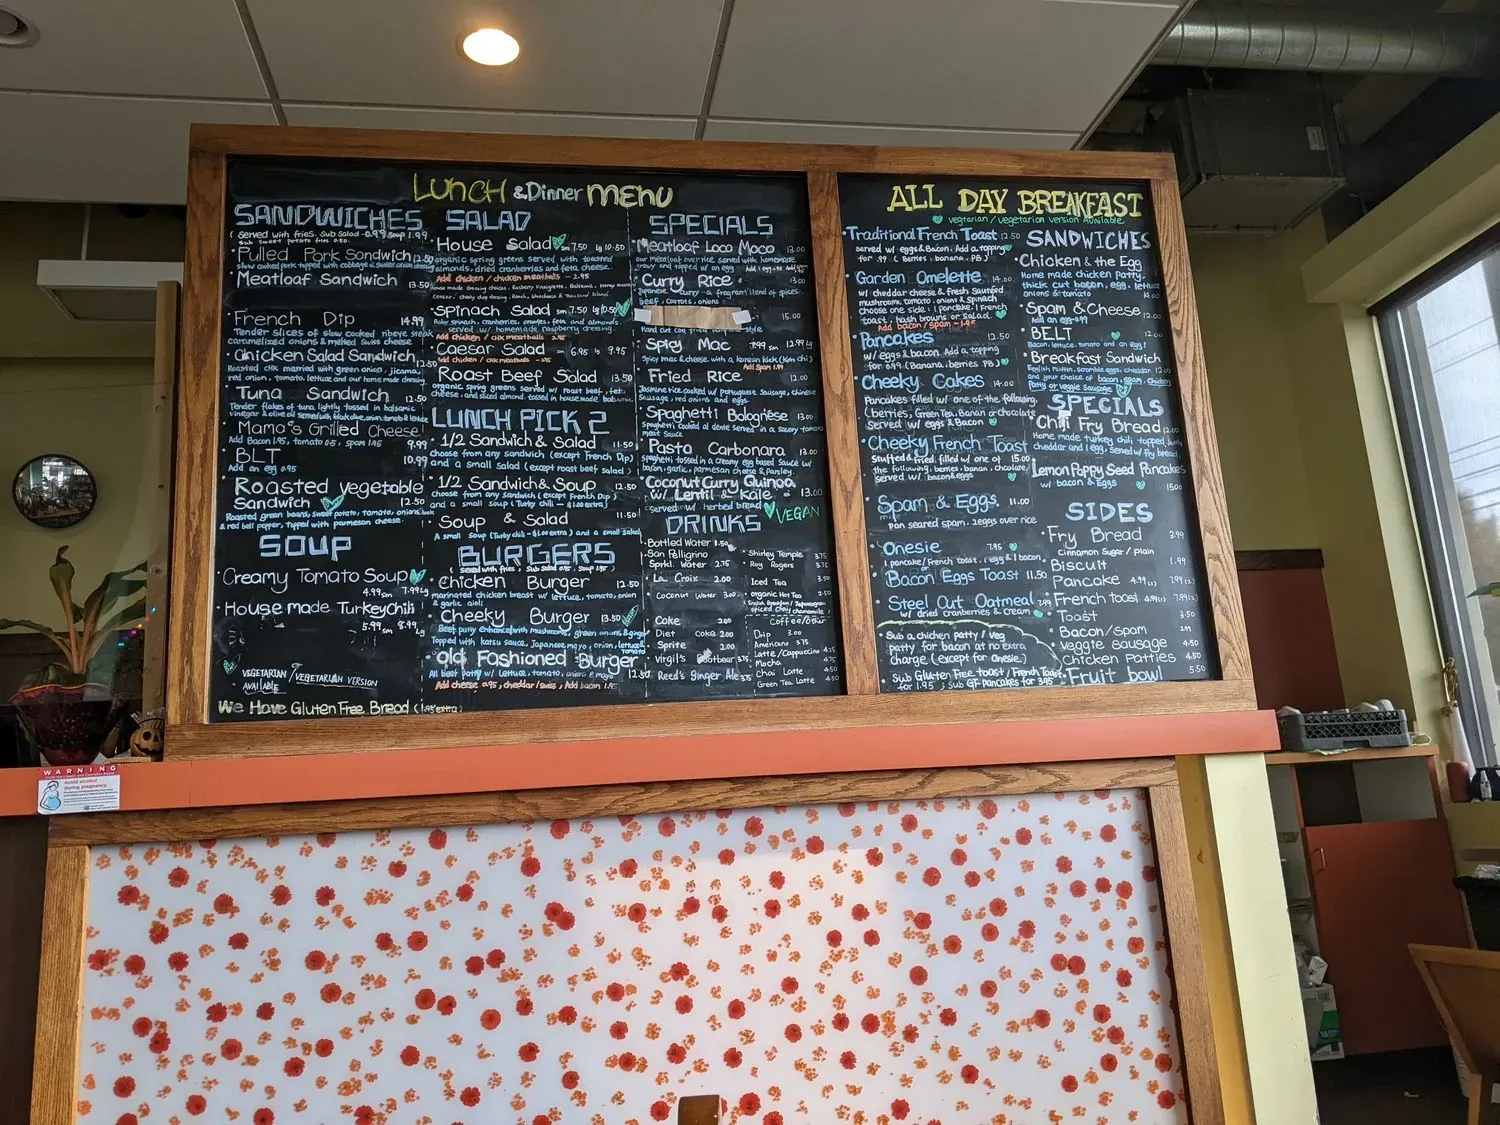 LUNCH & Dinner MENU
SANDWICHES
( served with fries. sub salad -0.99 soup 1.99
sub sweet potato fries 0.50.
Pulled Pork Sandwich 12.50
slow cooked pork topped with cabbage &
Meatloaf Sandwich 13.50
French Dip 14.99
Tender slices of slow cooked ribeye steak
caramelized onions & melted swiss cheese
Chicken Salad Sandwich 12.50
Roasted chk married with green onion, jicama,
red onion, tomato, lettuce and our home made dressing
Tuna Sandwich 12.50
Tender flakes of tuna lightly tossed in balsamic
vinegar & olive oil served with
Mama's Grilled Cheese
Add Bacon 1.95, tomato 0.5, spam 1.95 9.99
BLT 10.99
Add an egg 0.95
Roasted vegetable
Sandwich 12.50
Roasted green beans, sweet potato, tomato, onions,
& red bell pepper, topped with parmesan cheese
SOUP
Creamy Tomato Soup
4.99 sm 7.99 Lg
House made Turkey Chili
5.99 sm 8.99 Lg
VEGETARIAN / VEGETARIAN VERSION
AVAILABLE
We Have Gluten Free Bread (1.95 extra)
SALAD
House Salad sm 7.50 lg 10.50
organic spring greens served with toasted
almonds, dried cranberries and feta cheese.
Add chicken / chicken meatballs - 2.95
Spinach Salad sm 7.50 lg 10.50
Baby spinach, cranberries, oranges, feta, and almonds.
served w/ homemade raspberry dressing.
Add chicken / chk meatballs 2.95
Caesar Salad sm 6.95 lg 9.95
Add chicken / chk meatballs -2.95
Roast Beef Salad 13.50
organic spring greens served w/ roast beef, feta
cheese, and sliced almond. tossed in house made balsamic
LUNCH PICK 2
1/2 Sandwich & Salad 11.50
choose from any sandwich (except French Dip)
and a small Salad (except roast beef salad)
1/2 Sandwich & Soup 12.50
choose from any Sandwich (except French Dip)
and a small Soup (Turky chili - $1.00 extra)
Soup & Salad 11.50
A small Soup (Turky chili - $1.00 extra) and a small Salad
BURGERS
( served with fries, Sub salad 0.99, Soup 1.99)
Chicken Burger 12.50
marinated chicken breast w/ lettuce, tomato, onion
& garlic aioli
Cheeky Burger 13.50
Beef patty enhanced with mushrooms, green onions & ginger
Topped with katsu sauce, Japanese mayo, onion, lettuce
tomato
Old Fashioned Burger 12.50
All beef patty w/ Lettuce, tomato, onions & mayo
Add cheese 0.95, cheddar/swiss, Add bacon 1.95
SPECIALS
Meatloaf Loco Moco 13.00
our meatloaf over rice served with homemade
gravy and topped w/ an egg
Curry Rice 13.00
Japanese curry - a fragrant blend of spices.
beef, carrots, onions
15.00
style
Spicy Mac 12.99 Lg
Spicy mac & cheese with a korean kick (Kim chi)
Add Spam 1.99
Fried Rice 12.00
Jasmine rice cooked w/ Portuguese sausage, Chinese
Sausage, red onion and eggs.
Spaghetti Bolognese 13.00
Spaghetti cooked al dente served in a savory tomato
meat sauce
Pasta Carbonara 13.00
spaghetti tossed in a creamy egg based sauce w/
bacon, garlic, parmesan cheese & parsley.
Coconut Curry Quinoa
w/ Lentil & Kale 13.00
served w/ herbed bread VEGAN
DRINKS
Bottled Water 1.50
San Pellegrino
Sprkl. Water 2.75
La Croix 2.00
Coconut Water 3.00
Coke 2.00
Diet Coke 2.00
Sprite 2.00
Virgil's Rootbeer 3.75
Reed's Ginger Ale 3.75
Shirley Temple 3.75
Roy Rogers 3.75
Iced Tea 3.50
Organic Hot Tea 2.50
Coffee/other
Drip 3.00
Americano 3.75
Latte/Cappuccino 4.25
Mocha 4.75
Chai Latte 4.50
Green Tea Latte 4.50
ALL DAY BREAKFAST
vegetarian / vegetarian version available
Traditional French Toast 12.50
served w/ eggs & Bacon. Add a topping
for .99 ( Berries, banana, PB )
Garden Omelette 14.00
w/ cheddar cheese & Fresh Sauteed
mushroom, tomato, onions & spinach
choose one side: 1 pancake, 1 French
toast, hash browns or salad.
Add bacon/spam - 1.95
Pancakes 12.50
w/ eggs & bacon. Add a topping
for 0.99 (Banana, berries PB)
Cheeky Cakes 14.00
Pancakes filled w/ one of the following
(berries, Green Tea, Banana or chocolate
Served w/ eggs & bacon
Cheeky French Toast
Stuffed & fried, filled w/ one of 15.00
the following, berries, banana, chocolate.
served w/ bacon & eggs
Spam & Eggs 11.00
Pan seared spam, 2 eggs over rice
Onesie 7.95
1 pancake/french toast, 1 egg & 1 bacon
Bacon Eggs Toast 11.50
Steel Cut Oatmeal 7.99
w/ dried cranberries & cream
Sub a chicken patty / veg
patty for bacon at no extra
charge (except for onesie)
Sub Gluten Free toast/French toast
for 1.95, Sub GF pancakes for 3.95
SANDWICHES
Chicken & the Egg
Home made chicken patty,
thick cut bacon, egg, lettuce
onions & tomato 14.00
Spam & Cheese
Add an egg 0.99 12.00
BELT 12.00
Bacon, lettuce, tomato and an egg!
Breakfast Sandwich
English Muffin, scramble eggs, cheddar 12.00
and your choice of bacon, spam, chicken
patty or veggie sausage
SPECIALS
Chili Fry Bread 12.00
Home made turkey chili topped
cheddar and 1 egg. Served w/ fry bread
Lemon Poppy Seed Pancakes
w/ bacon & eggs 15.00
SIDES
Fry Bread 3.99
Cinnamon Sugar / plain
Biscuit 1.99
Pancake 4.99 (1) 7.99 (2)
French toast 4.99 (1) 7.99 (2)
Toast 3.50
Bacon/spam 2.99
Veggie Sausage 4.50
Chicken Patties 4.50
Fruit bowl 5.50
WARNING
Avoid alcohol
during pregnancy.